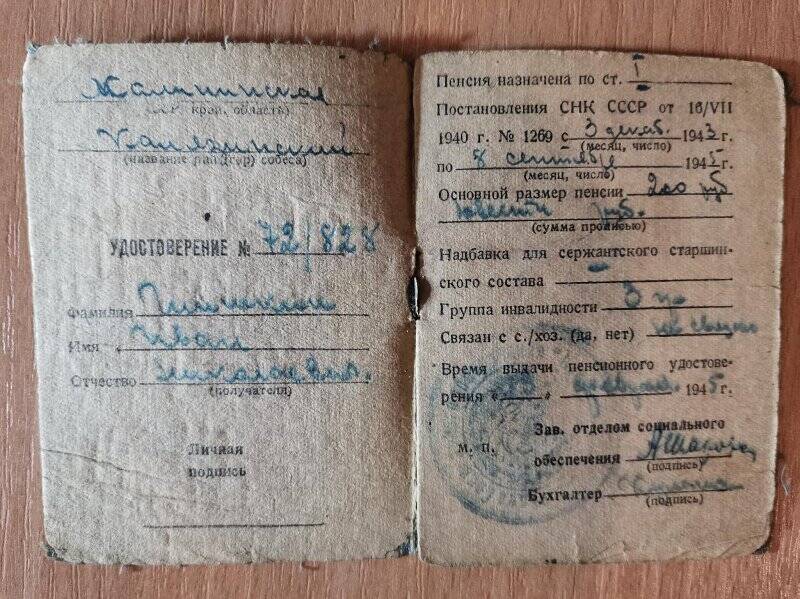 Калининская
край, область)
Калязинский
(название рай (гор) собеса)
УДОСТОВЕРЕНИЕ № 72/828
Фамилия
Имя Иван
Отчество
(получателя)
Личная
подпись
Пенсия назначена по ст. I
Постановления СНК СССР от 16/VII
1940 г. № 1269 с 3 декаб. 1943 г.
(месяц, число)
по 8 сентября 1945 г.
(месяц, число)
Основной размер пенсии 200 руб
двести руб.
(сумма прописью)
Надбавка для сержантского старшин-
ского состава —
Группа инвалидности 3 гр
Связан с с./хоз. (да, нет) не связан
Время выдачи пенсионного удостове-
рения « » 1945 г.
Зав. отделом социального
м. п.
обеспечения
(подпись)
Бухгалтер
(подпись)